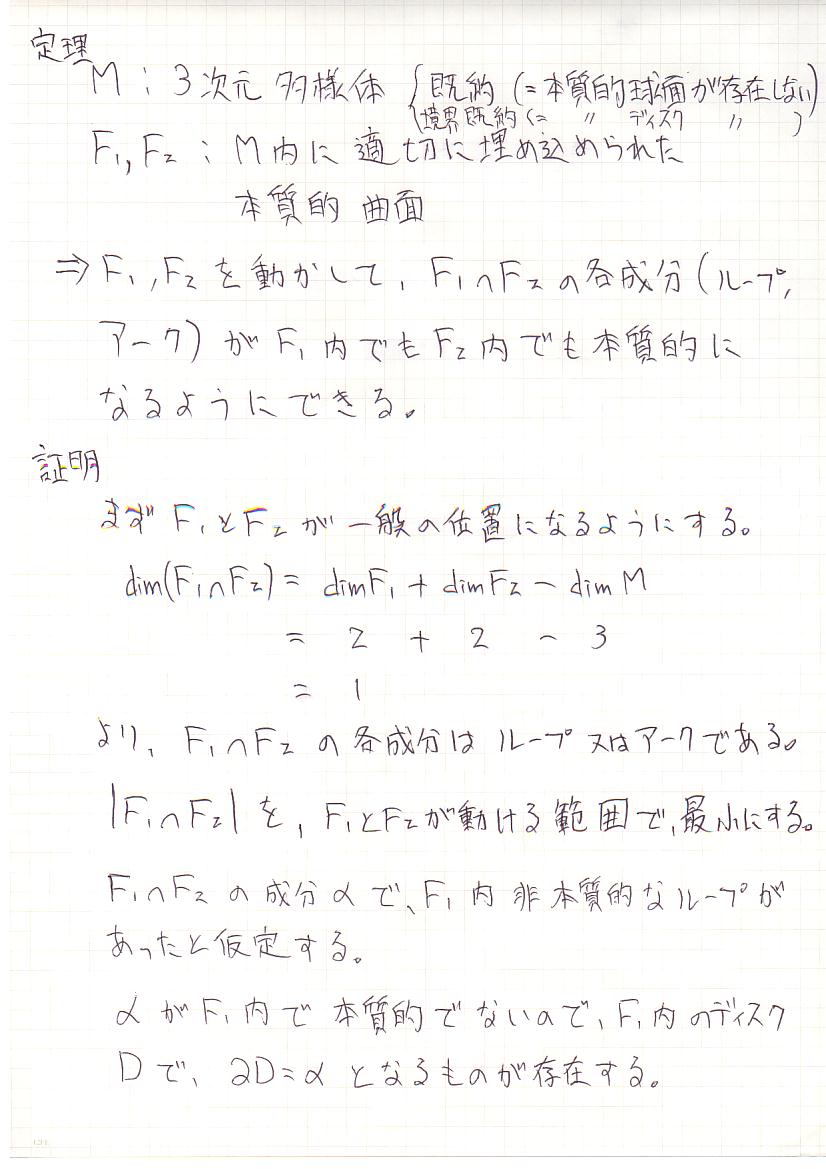 定理
M : 3次元 多様体 { 既約 (= 本質的球面が存在しない)
(境界既約 (= 〃 ディスク 〃 )
F₁, F₂ : M内に適切に埋め込められた
本質的 曲面
⇒ F₁, F₂ を動かして、F₁∩F₂ の各成分(ループ,
アーク) が F₁ 内でも F₂ 内でも本質的に
なるようにできる。
証明
まず F₁とF₂ が一般の位置になるようにする。
dim(F₁∩F₂) = dimF₁ + dimF₂ − dim M
= 2 + 2 − 3
= 1
より、F₁∩F₂ の各成分は ループ又はアークである。
|F₁∩F₂| を、F₁とF₂が動ける範囲で、最小にする。
F₁∩F₂ の成分 α で、F₁ 内 非本質的なループが
あったと仮定する。
α が F₁ 内で 本質的でないので、F₁ 内のディスク
D で、∂D=α となるものが存在する。